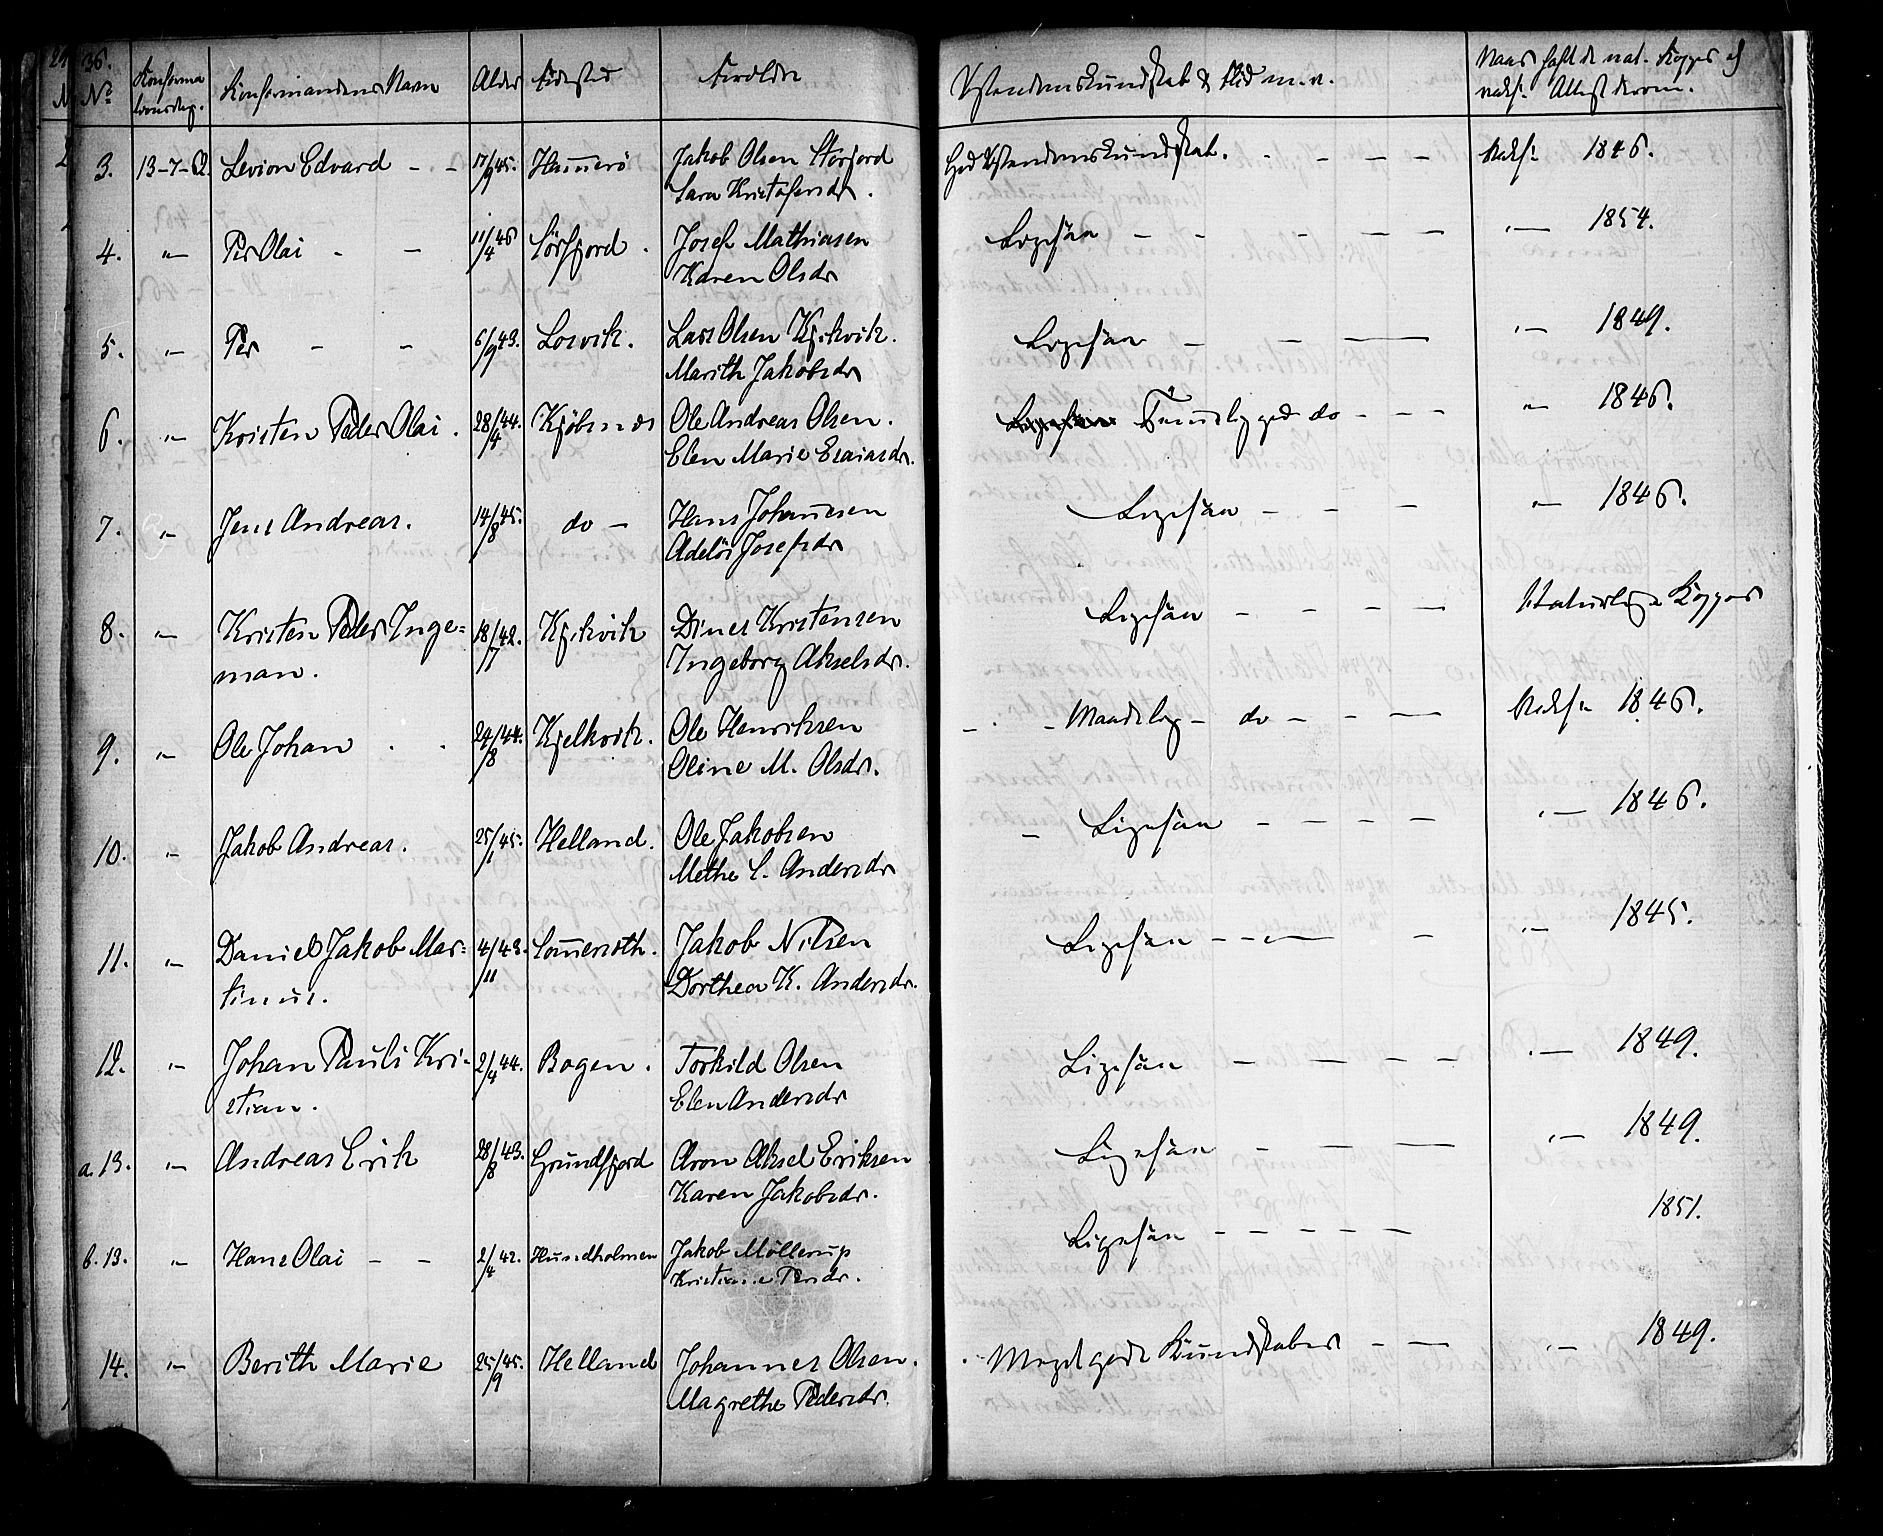 36.
No Konfirmationsdag. Konfirmandens Navn Alder Fødested Foreldre Kristendomskundskab & Flid m.v. Naar havt de nat. Kopper el vaks. Attest derom.
3. 13-7-62. Levion Edvard - - 17/9 45. Hamerö Jakob Olsen Storfjord God Kristendomskundskab. - - - - Vaks. 1846.
Sara Kristofersdr.
4. " Per Olai - - 11/4 46 Sörfjord. Josef Mathiasen Ligesaa - - - - - " 1854.
Karen Olsdr
5. " Per - - 6/9 43. Losvik. Lars Olsen Kjikvik. Ligesaa - - - " 1849.
Marith Jakobsdr
6. " Kristen Peder Olai. 28/4 44. Kjöbsnes Ole Andreas Olsen. Ligesaa Temmelig god do - - - " 1846.
Elen Marie Esaiasdr.
7. " Jens Andreas. 14/8 45. do - Hans Johannesen Ligesaa - - - " 1846.
Adelös Josefsdr
8. " Kristen Peder Inge= 18/7 42. Kjikvik Dines Kristensen Ligesaa - - - - Naturlige Kopper
man. Ingeborg Akselsdr.
9. " Ole Johan . . 24/8 44. Kjelkvik. Ole Henriksen - - Maadelig - do - - - Vaks. 1846.
Oline M. Olsdr.
10. " Jakob Andreas. 25/1 45. Helland. Ole Jakobsen - Ligesaa - - - - " 1846.
Methe C. Andersdr
11. " Daniel Jakob Mar= 4/11 43. Sommerseth. Jakob Nilsen Ligesaa - - - - " 1845.
tinus. Dorthea K. Andersdr.
12. " Johan Pauli Kri= 2/4 44. Bogen. Torkild Olsen Ligesaa - - - - " 1849.
stian. Elen Andersdr
a. 13. " Andreas Erik 28/8 43. Grundfjord Aron Aksel Eriksen Ligesaa - - - " 1849.
Karen Jakobsdr.
b. 13. " Hans Olai - - 2/4 42. Hundholmen Jakob Möllerup Ligesaa - - - - - 1851.
Kristiane Persdr.
14. " Berith Marie 25/9 45. Helland Johannes Olsen. Meget gode Kundskaber - - " 1849.
Magrethe Pedersdr.